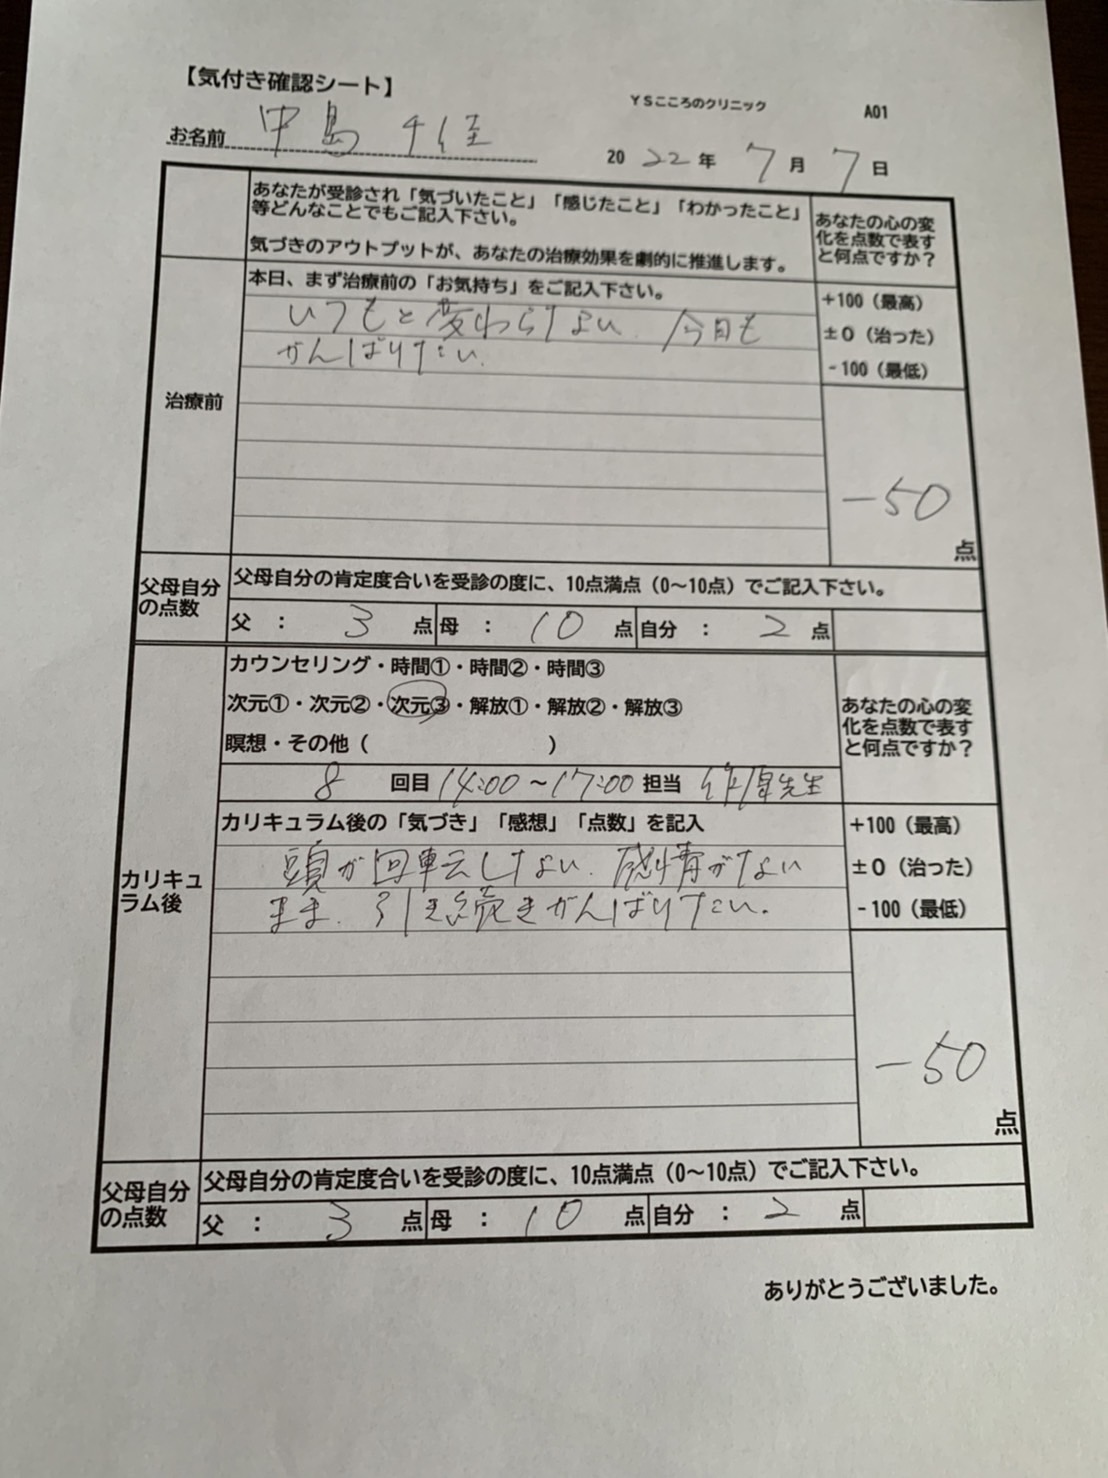 【気付き確認シート】
YSこころのクリニック
A01
お名前 中島 千佳
2022年 7月 7日
あなたが受診され「気づいたこと」「感じたこと」「わかったこと」
等どんなことでもご記入下さい。
気づきのアウトプットが、あなたの治療効果を劇的に推進します。
あなたの心の変
化を点数で表す
と何点ですか？
治療前
本日、まず治療前の「お気持ち」をご記入下さい。
いつもと変わらない。今日も
がんばりたい。
+100（最高）
±0（治った）
-100（最低）
-50
点
父母自分
の点数
父母自分の肯定度合いを受診の度に、10点満点（0～10点）でご記入下さい。
父 ： 3 点 母 ： 10 点 自分 ： 2 点
カウンセリング・時間①・時間②・時間③
次元①・次元②・次元③・解放①・解放②・解放③
瞑想・その他（ ）
8 回目 14:00～17:00 担当 先生
あなたの心の変
化を点数で表す
と何点ですか？
カリキュ
ラム後
カリキュラム後の「気づき」「感想」「点数」を記入
頭が回転しない。感情がない
まま。引き続きがんばりたい。
+100（最高）
±0（治った）
-100（最低）
-50
点
父母自分
の点数
父母自分の肯定度合いを受診の度に、10点満点（0～10点）でご記入下さい。
父 ： 3 点 母 ： 10 点 自分 ： 2 点
ありがとうございました。